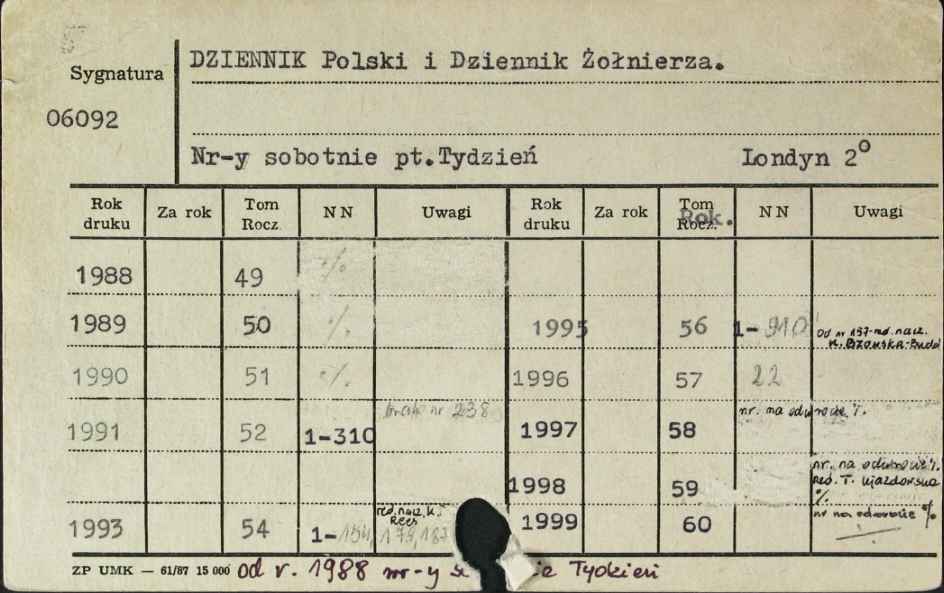 DZIENNIK Polski i Dziennik Żołnierza.
Sygnatura
06092
Nr-y sobotnie pt.Tydzień Londyn 2°
Rok druku Za rok Tom Rocz. NN Uwagi Rok druku Za rok Tom Rocz. Rok. NN Uwagi
1988 49 %
1989 50 % 1995 56 1-910 Od nr 197-red. nacz.
1990 51 % 1996 57 22
brak nr 238 nr. na odwrocie %.
1991 52 1-310 1997 58
nr. na odwrocie %.
1998 59 red. T. Ujazdowska %.
red. nacz. K. Rees nr na odwrocie %
1993 54 1- 1999 60
ZP UMK — 61/87 15 000 od r. 1988 nr-y Tydzień